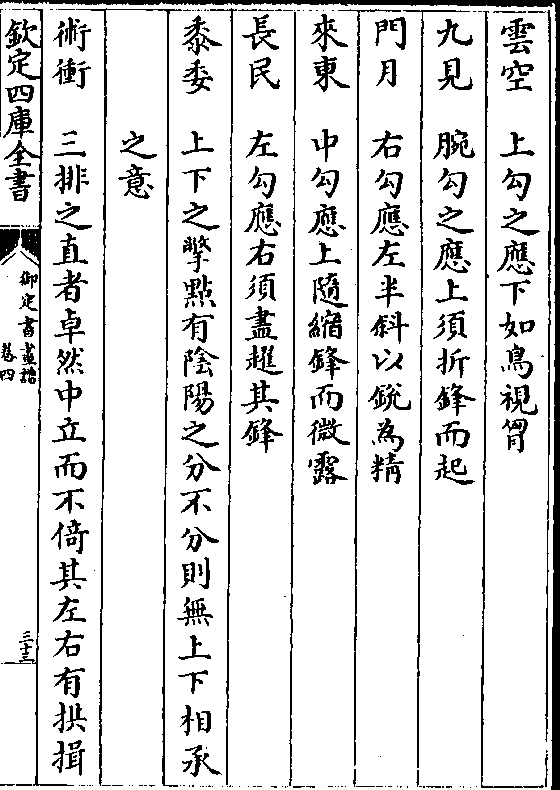 雲空　上勾之應下如鳥視胷
九見　腕勾之應上須折鋒而起
門月　右勾應左半斜以銳為精
來東　中勾應上隨縮鋒而微露
長民　左勾應右須盡趯其鋒
黍委　上下之撆點有陰陽之分不分則無上下相承
之意
術衝　三排之直者卓然中立而不倚其左右有拱揖
欽定四庫全書
御定書畫譜
卷四
三十三